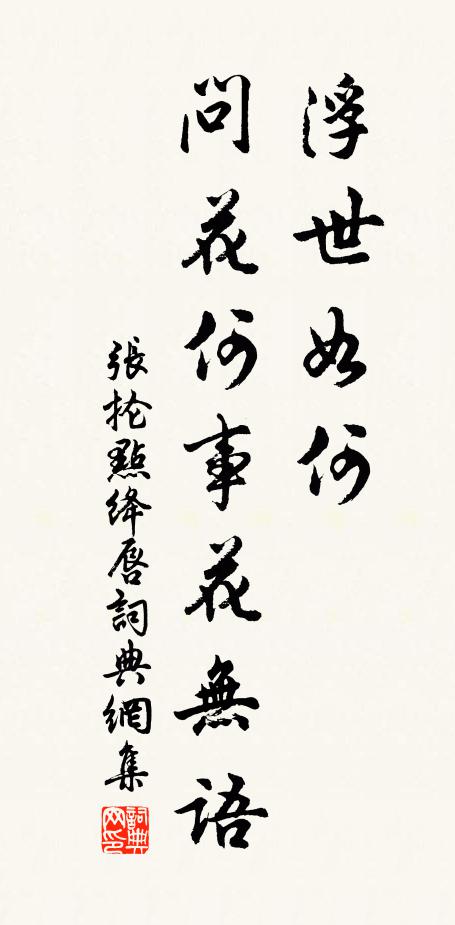 浮世如何
問花何事花無語
張掄點絳唇詞典網集
詞典网印